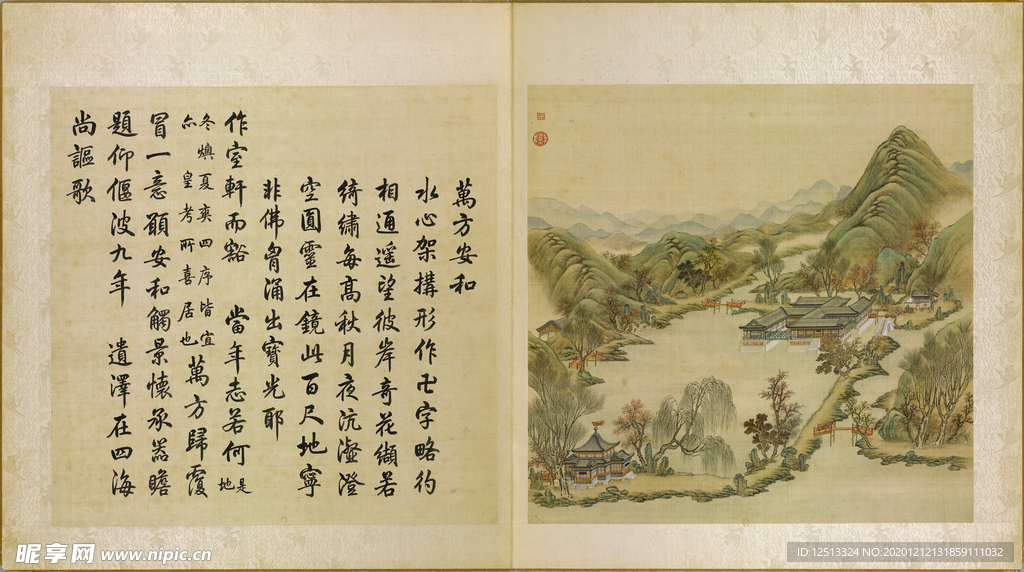 萬方安和
水心架搆形作卍字略彴
相通遥望彼岸奇花纈若
綺繡每髙秋月夜沆瀣澄
空圓靈在鏡此百尺地寧
非佛胷涌出寶光耶
作室軒而豁 當年志若何 是地
冬燠夏爽四序皆宜
亦皇考所喜居也
萬方歸覆
冒一意願安和觸景懷承器瞻
題仰偃波九年 遺澤在四海
尚謳歌
昵享网 www.nipic.cn
ID:12513324 NO:20201212131859111032